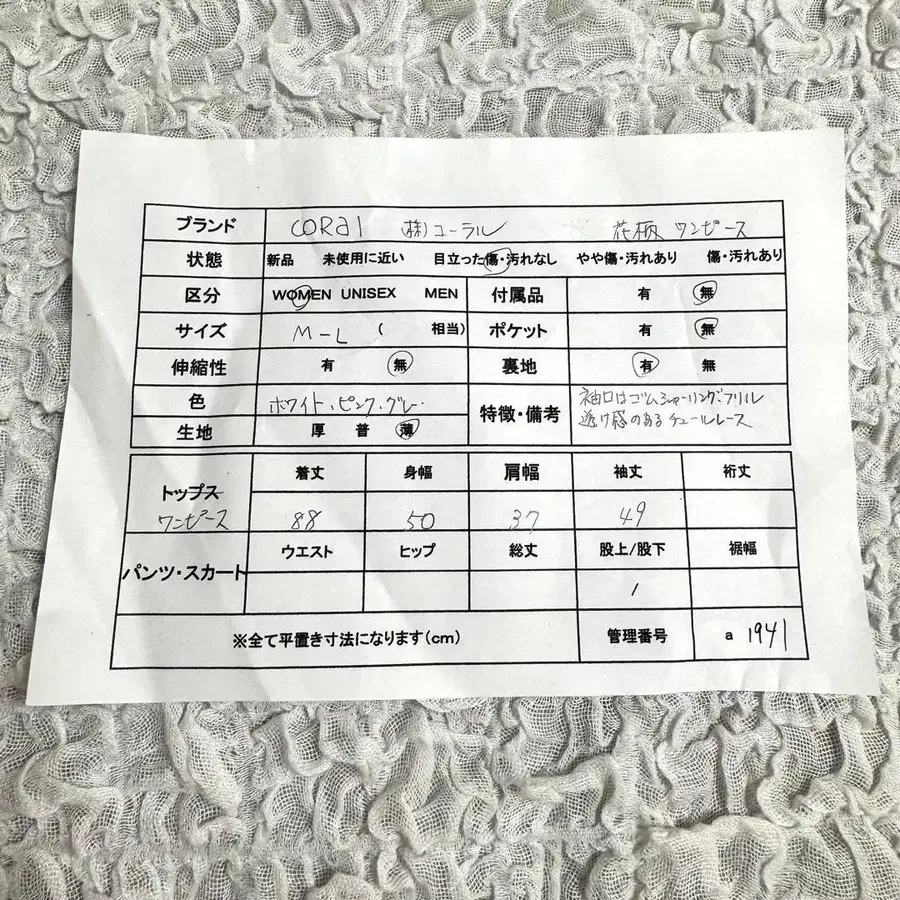 ブランド CORal ㈱コーラル 花柄 ワンピース
状態 新品 未使用に近い 目立った傷・汚れなし やや傷・汚れあり 傷・汚れあり
区分 WOMEN UNISEX MEN 付属品 有 無
サイズ M-L ( 相当) ポケット 有 無
伸縮性 有 無 裏地 有 無
色 ホワイト・ピンク・グレー 特徴・備考 袖口はゴムシャーリング・フリル
透け感のあるチュールレース
生地 厚 普 薄
トップス 着丈 身幅 肩幅 袖丈 裄丈
ワンピース 88 50 37 49
パンツ・スカート ウエスト ヒップ 総丈 股上/股下 裾幅
/
※全て平置き寸法になります(cm) 管理番号 a 1941